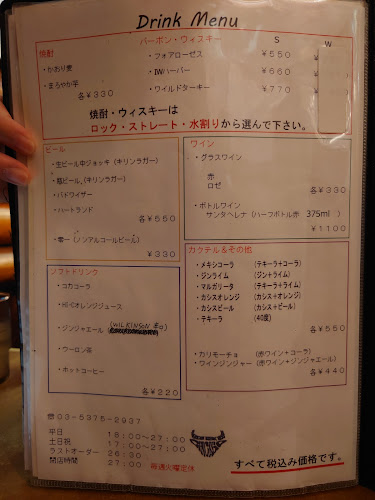 Drink Menu
焼酎
・かおり麦
・まろやか芋
各￥330
バーボン・ウィスキー S W
・フォアローゼス ￥550
・IWハーパー ￥660
・ワイルドターキー ￥770
焼酎・ウィスキーは
ロック・ストレート・水割りから選んで下さい。
ビール
・生ビール中ジョッキ (キリンラガー)
・瓶ビール (キリンラガー)
・バドワイザー
・ハートランド
各￥550
・零一 (ノンアルコールビール)
￥330
ワイン
・グラスワイン
赤
ロゼ
各￥330
・ボトルワイン
サンタヘレナ (ハーフボトル赤 375ml )
￥1100
ソフトドリンク
・コカコーラ
・Hi-Cオレンジジュース
・ジンジャエール (WILKINSON 辛口)
・ウーロン茶
・ホットコーヒー
各￥220
カクテル＆その他
・メキシコーラ (テキーラ+コーラ)
・ジンライム (ジン+ライム)
・マルガリータ (テキーラ+ライム)
・カシスオレンジ (カシス+オレンジ)
・カシスビール (カシス+ビール)
・テキーラ (40度)
各￥550
・カリモーチョ (赤ワイン+コーラ)
・ワインジンジャー (赤ワイン+ジンジャエール)
各￥440
☎03-5375-2937
平日 18:00〜27:00
土日祝 17:00〜27:00
ラストオーダー 26:30
閉店時間 27:00 毎週火曜定休
すべて税込み価格です。